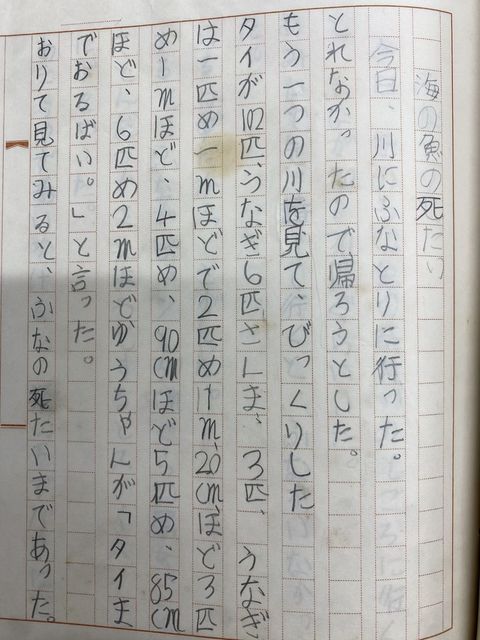 海の魚の死たい
今日、川にふなとりに行った。
とれなかったので帰ろうとした。
もう一つの川を見て、びっくりした
タイが102匹、うなぎ6匹さんま、3匹、うなぎ
は一匹め一mほどで2匹め1m、20cmほど3匹
め1mほど、4匹め、90cmほど5匹め、85cm
ほど、6匹め2mほどゆうちゃんが「タイま
でおるばい。」と言った。
おりて見てみると、ふなの死たいまであった。